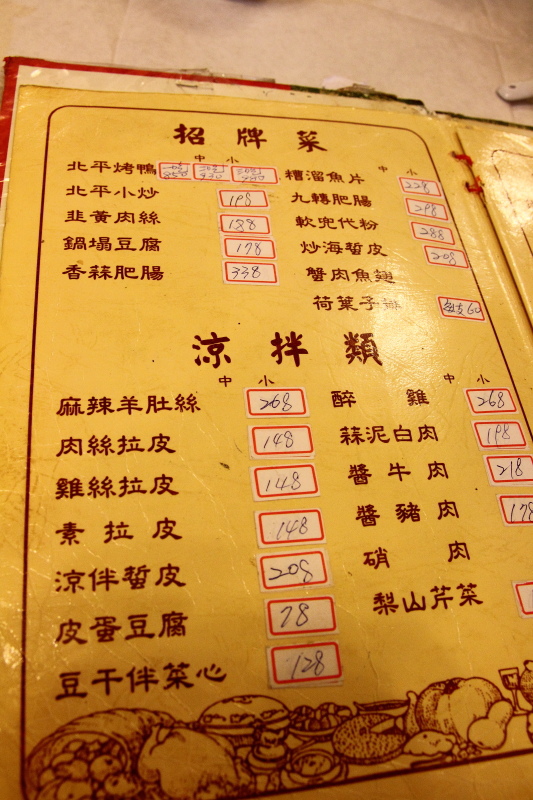 招牌菜
中 小
北平烤鴨
北平小炒 198
韭黃肉絲 188
鍋塌豆腐 178
香蒜肥腸 338
中 小
糟溜魚片 228
九轉肥腸 298
軟兜代粉 288
炒海蜇皮 208
蟹肉魚翅
荷葉子排 60
涼拌類
中 小
麻辣羊肚絲 268
肉絲拉皮 148
雞絲拉皮 148
素拉皮 148
涼伴蜇皮 208
皮蛋豆腐 78
豆干伴菜心 128
中 小
醉雞 268
蒜泥白肉 198
醬牛肉 218
醬豬肉 178
硝肉
梨山芹菜